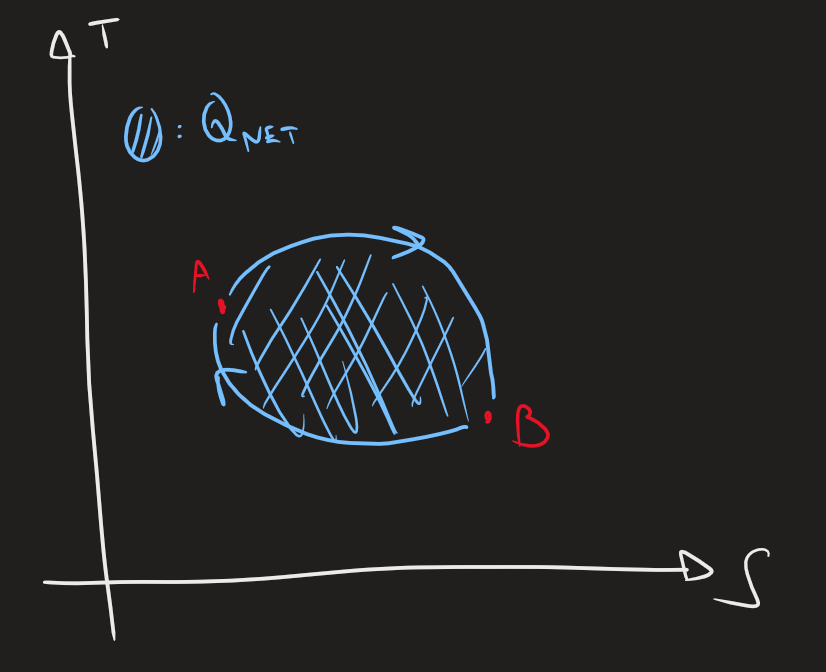 T
: Q NET
A
B
S